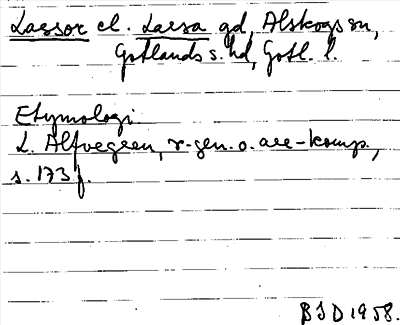 Lassor el. Larsa gd, Alskogs sn,
Gotlands s. hd, Gotl. l.
Etymologi
L. Alfvegren, r-gen. o. ace-komp.,
s. 173 f.
BSD 1958.